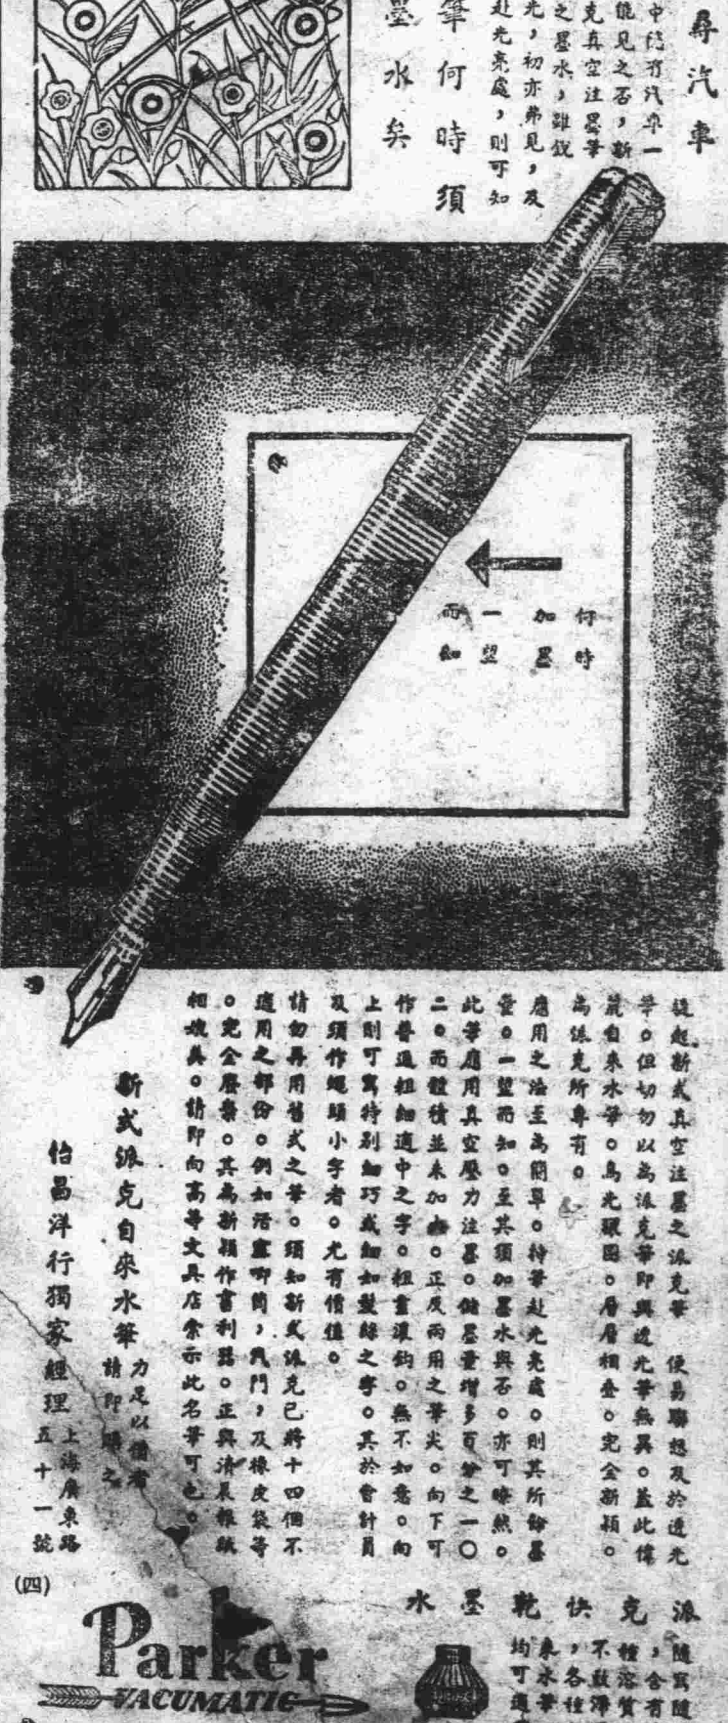 尋汽車
中隱有汽車一
能見之否，新
克真空注墨筆
之墨水，雖說
光，初亦弗見，及
赴光亮處，則可知
筆何時須
墨水矣
何時
加墨
一望
而知
提起新式真空注墨之派克筆 便易聯想及於透光
筆。但切勿以為派克筆即與透光筆無異。蓋此偉
麗自來水筆。烏光環圈。層層相叠。完全新穎。
為派克所專有。
應用之法至為簡單。持筆赴光亮處。則其所餘墨
量。一望而知。至其須加墨水與否。亦可暸然。
此筆應用真空壓力注墨。儲墨量增多百分之一〇
二。而體積並未加。正反兩用之筆尖。向下可
作普通粗細適中之字。粗畫濃鈎。無不如意。向
上則可寫特別細巧或細如髮絲之字。其於會計員
及須作蠅頭小字者。尤有價值。
請勿再用舊式之筆。須知新式派克已將十四個不
適用之部份。例如活塞唧筒，門，及橡皮袋等
。完全廢棄。其為新穎作書利器。正與清晨報紙
相媲美。請即向高等文具店索示此名筆可也。
新式派克自來水筆
力足以備者
請即購之
怡昌洋行獨家經理
上海廣東路
五十一號
(四)
派克快乾墨水
隨寫隨
，含有
種溶質
不致滯
，各種
來水筆
均可適
Parker
VACUMATIC